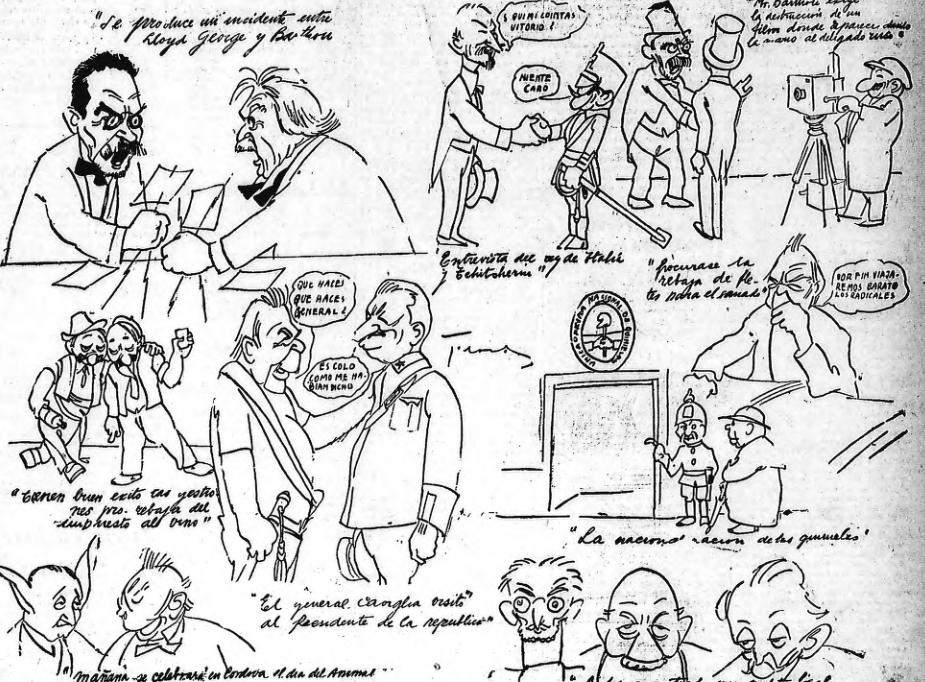 "Se produce un incidente entre
Lloyd George y Barthou
QUI MI CONTAS
VITORIO ?
NIENTE
CARO
"Mr. Barthou exige
la destrucción de un
film donde aparece dando
la mano al delegado ruso"
"Entrevista del rey de Italia
y Tchitcherin"
"Procurase la
rebaja de fle-
tes para el ganado"
POR FIN VIAJA-
REMOS BARATO
LOS RADICALES
QUE HACES
QUE HACES
GENERAL ?
ES COLO
COMO ME HA-
BIAN DICHO
NACIONAL DE
"tienen buen exito las gestio-
nes pro-rebaja del
impuesto al vino"
"El general Caviglia visitó
al Presidente de la republica"
"La de las quinielas"
"mañana se celebrará en Cordova el dia del Animal"